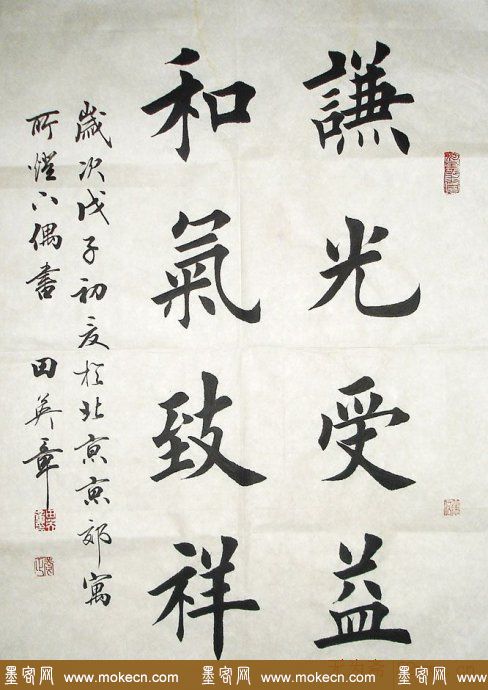 謙光受益
和氣致祥
歲次戊子初夏於北京京郊寓
所燈下偶書 田英章
墨客网 www.mokecn.com 墨客网 www.mokecn.com 墨客网